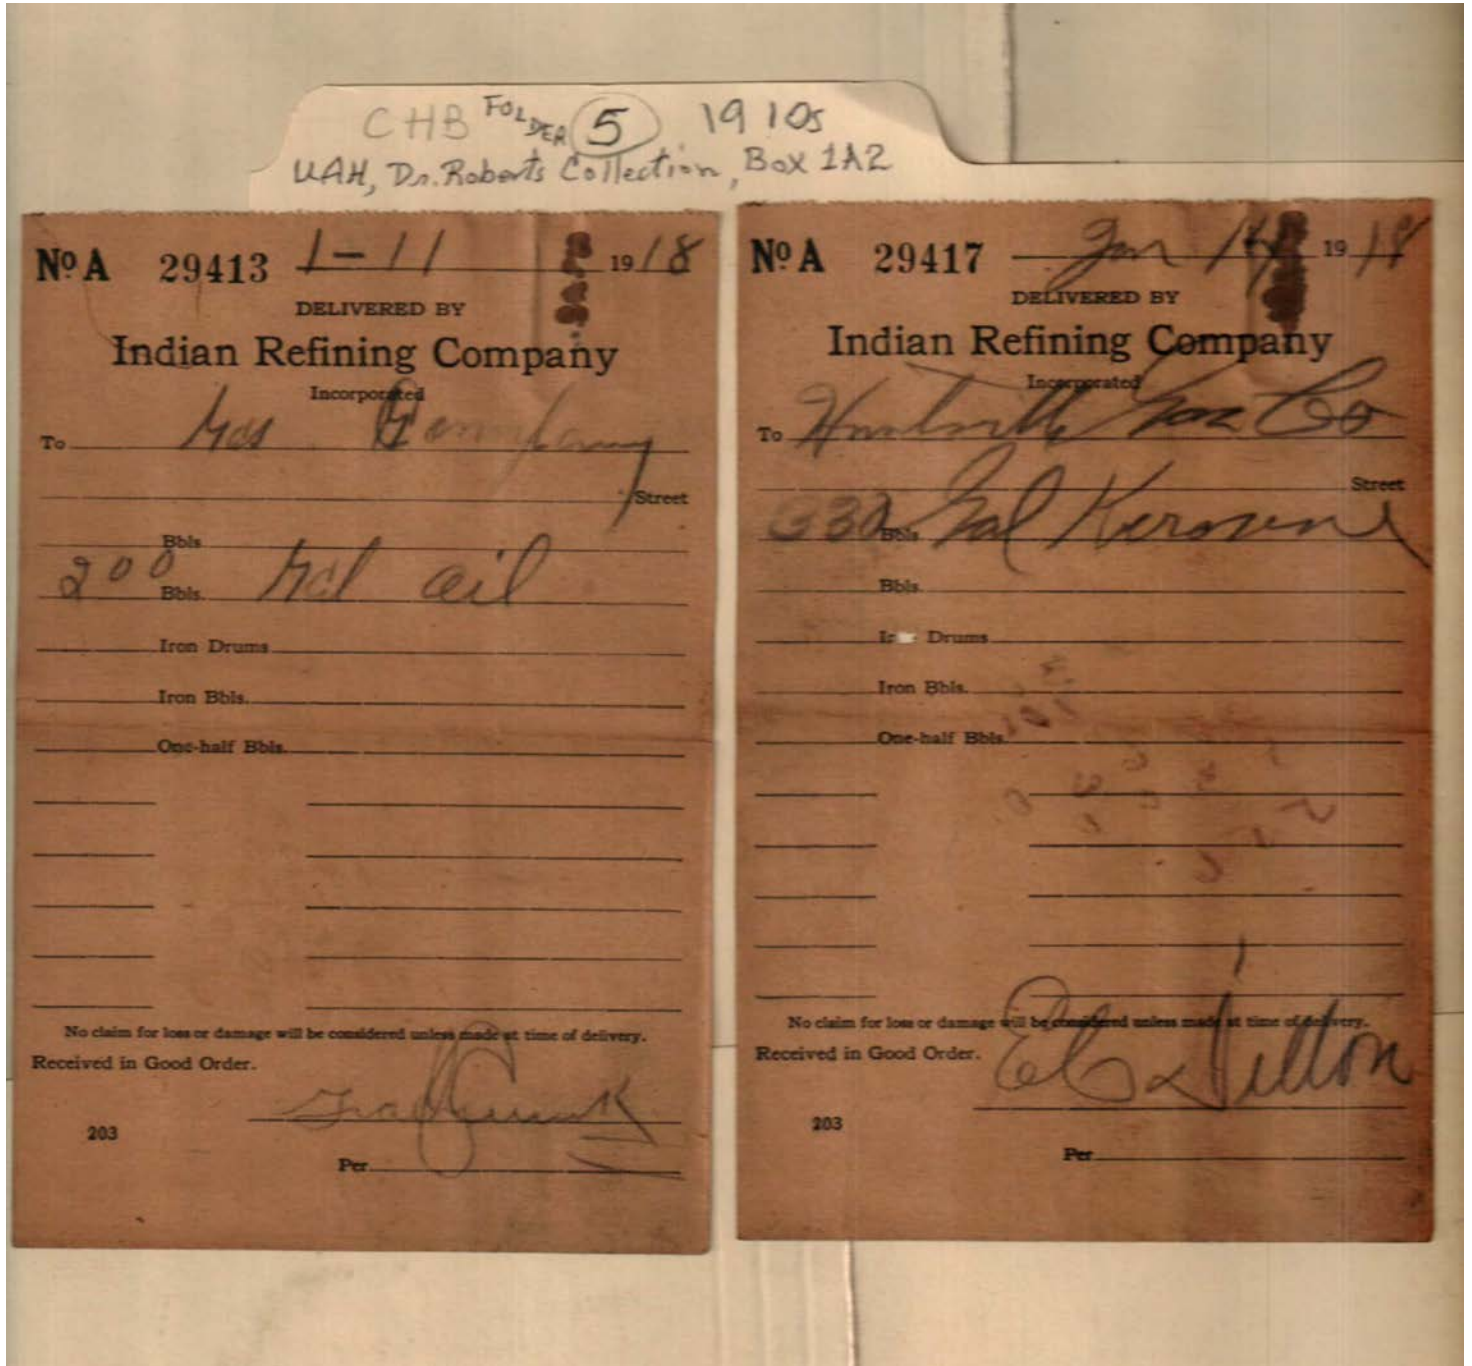 CHB FOLDER 5 1910s
UAH, Dr. Roberts Collection, Box 1A2
No A 29413 1-11 1918
DELIVERED BY
Indian Refining Company
Incorporated
To Gas Company
Street
Bbls
200 Bbls. Gal oil
Iron Drums
Iron Bbls.
One-half Bbls.
No claim for loss or damage will be considered unless made at time of delivery.
Received in Good Order.
203
Per
No A 29417 Jan 1918
DELIVERED BY
Indian Refining Company
Incorporated
To Huntsville Gas Co
Street
Bbls. Gal Kerosene
Bbls.
Drums
Iron Bbls.
One-half Bbls.
No claim for loss or damage will be considered unless made at time of delivery.
Received in Good Order.
203
Per